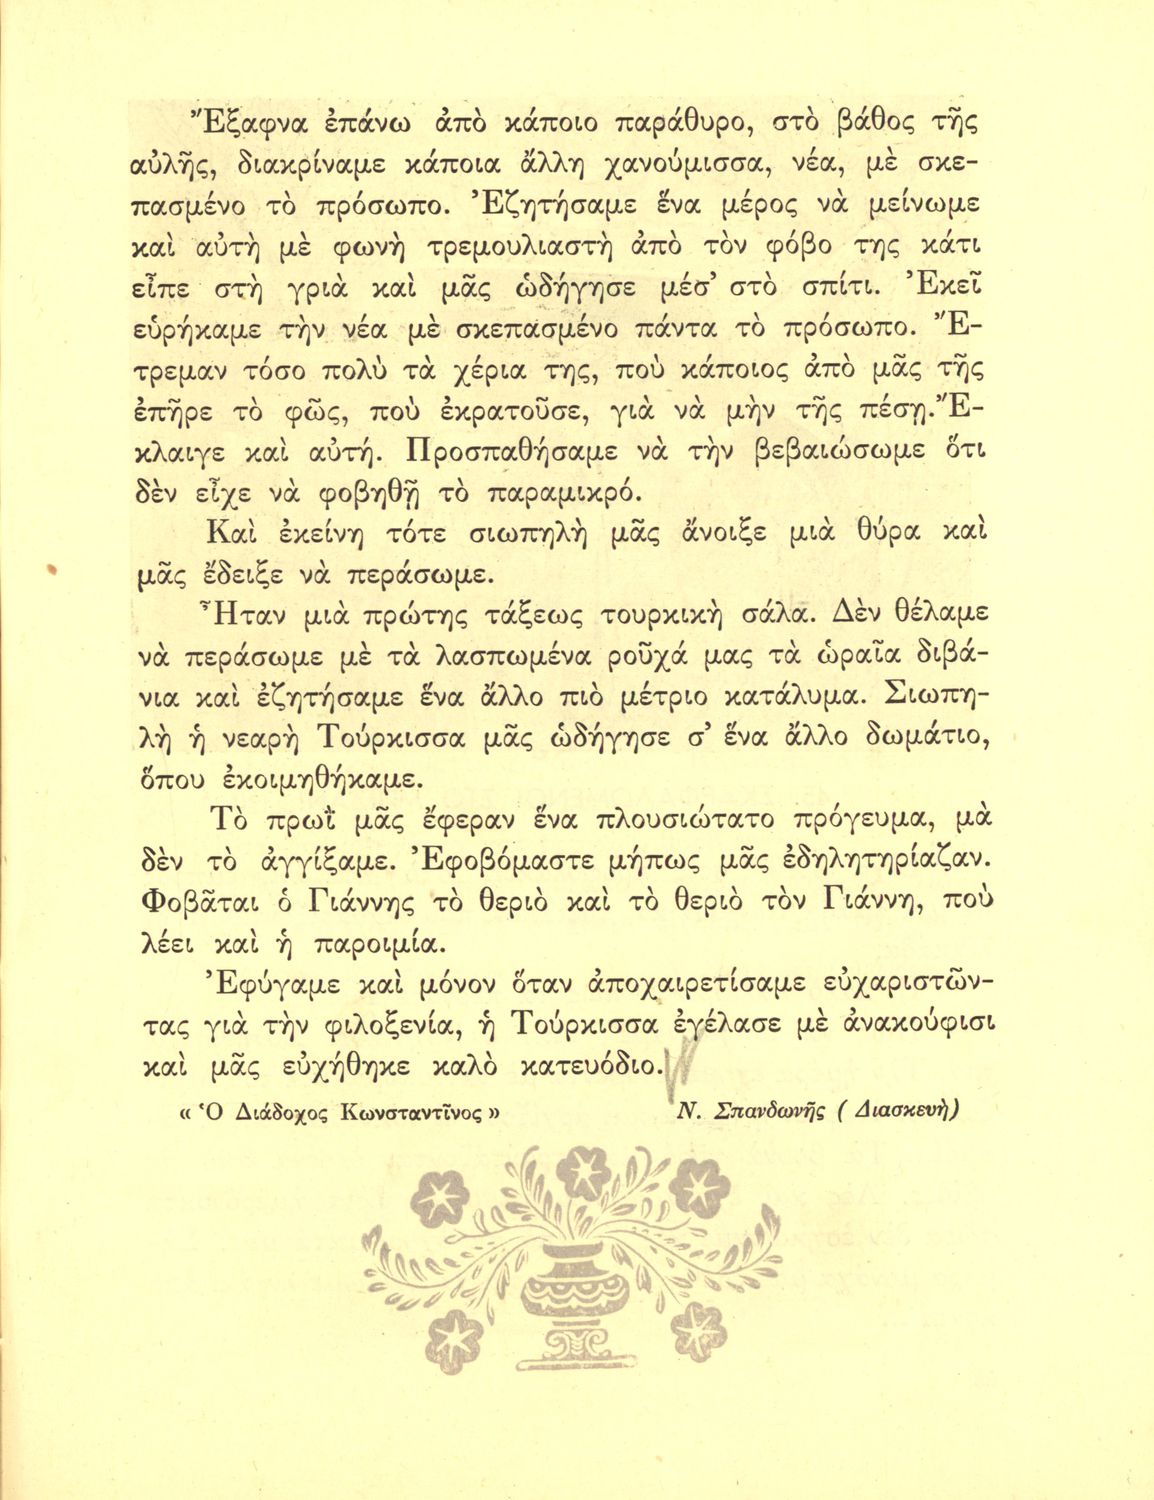 Ἔξαφνα ἐπάνω ἀπὸ κάποιο παράθυρο, στὸ βάθος τῆς
αὐλῆς, διακρίναμε κάποια ἄλλη χανούμισσα, νέα, μὲ σκε-
πασμένο τὸ πρόσωπο. Ἐζητήσαμε ἕνα μέρος νὰ μείνωμε
καὶ αὐτὴ μὲ φωνὴ τρεμουλιαστὴ ἀπὸ τὸν φόβο της κάτι
εἶπε στὴ γριὰ καὶ μᾶς ὡδήγησε μέσ' στὸ σπίτι. Ἐκεῖ
εὑρήκαμε τὴν νέα μὲ σκεπασμένο πάντα τὸ πρόσωπο. Ἔ-
τρεμαν τόσο πολὺ τὰ χέρια της, ποὺ κάποιος ἀπὸ μᾶς τῆς
ἐπῆρε τὸ φῶς, ποὺ ἐκρατοῦσε, γιὰ νὰ μὴν τῆς πέσῃ. Ἔ-
κλαιγε καὶ αὐτή. Προσπαθήσαμε νὰ τὴν βεβαιώσωμε ὅτι
δὲν εἶχε νὰ φοβηθῇ τὸ παραμικρό.
Καὶ ἐκείνη τότε σιωπηλὴ μᾶς ἄνοιξε μιὰ θύρα καὶ
μᾶς ἔδειξε νὰ περάσωμε.
Ἦταν μιὰ πρώτης τάξεως τουρκικὴ σάλα. Δὲν θέλαμε
νὰ περάσωμε μὲ τὰ λασπωμένα ροῦχά μας τὰ ὡραῖα διβά-
νια καὶ ἐζητήσαμε ἕνα ἄλλο πιὸ μέτριο κατάλυμα. Σιωπη-
λὴ ἡ νεαρὴ Τούρκισσα μᾶς ὡδήγησε σ' ἕνα ἄλλο δωμάτιο,
ὅπου ἐκοιμηθήκαμε.
Τὸ πρωῒ μᾶς ἔφεραν ἕνα πλουσιώτατο πρόγευμα, μὰ
δὲν τὸ ἀγγίξαμε. Ἐφοβόμαστε μήπως μᾶς ἐδηλητηρίαζαν.
Φοβᾶται ὁ Γιάννης τὸ θεριὸ καὶ τὸ θεριὸ τὸν Γιάννη, ποὺ
λέει καὶ ἡ παροιμία.
Ἐφύγαμε καὶ μόνον ὅταν ἀποχαιρετίσαμε εὐχαριστῶν-
τας γιὰ τὴν φιλοξενία, ἡ Τούρκισσα ἐγέλασε μὲ ἀνακούφισι
καὶ μᾶς εὐχήθηκε καλὸ κατευόδιο.
« Ὁ Διάδοχος Κωνσταντῖνος » Ν. Σπανδωνῆς ( Διασκευὴ)